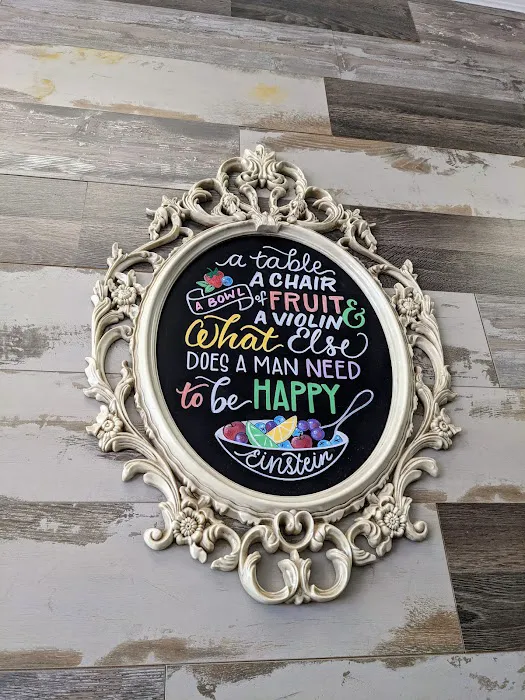 a table
A CHAIR
A BOWL of FRUIT &
A VIOLIN
What Else
DOES A MAN NEED
to be HAPPY
Einstein